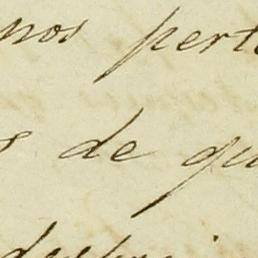 nos pert
s de qu